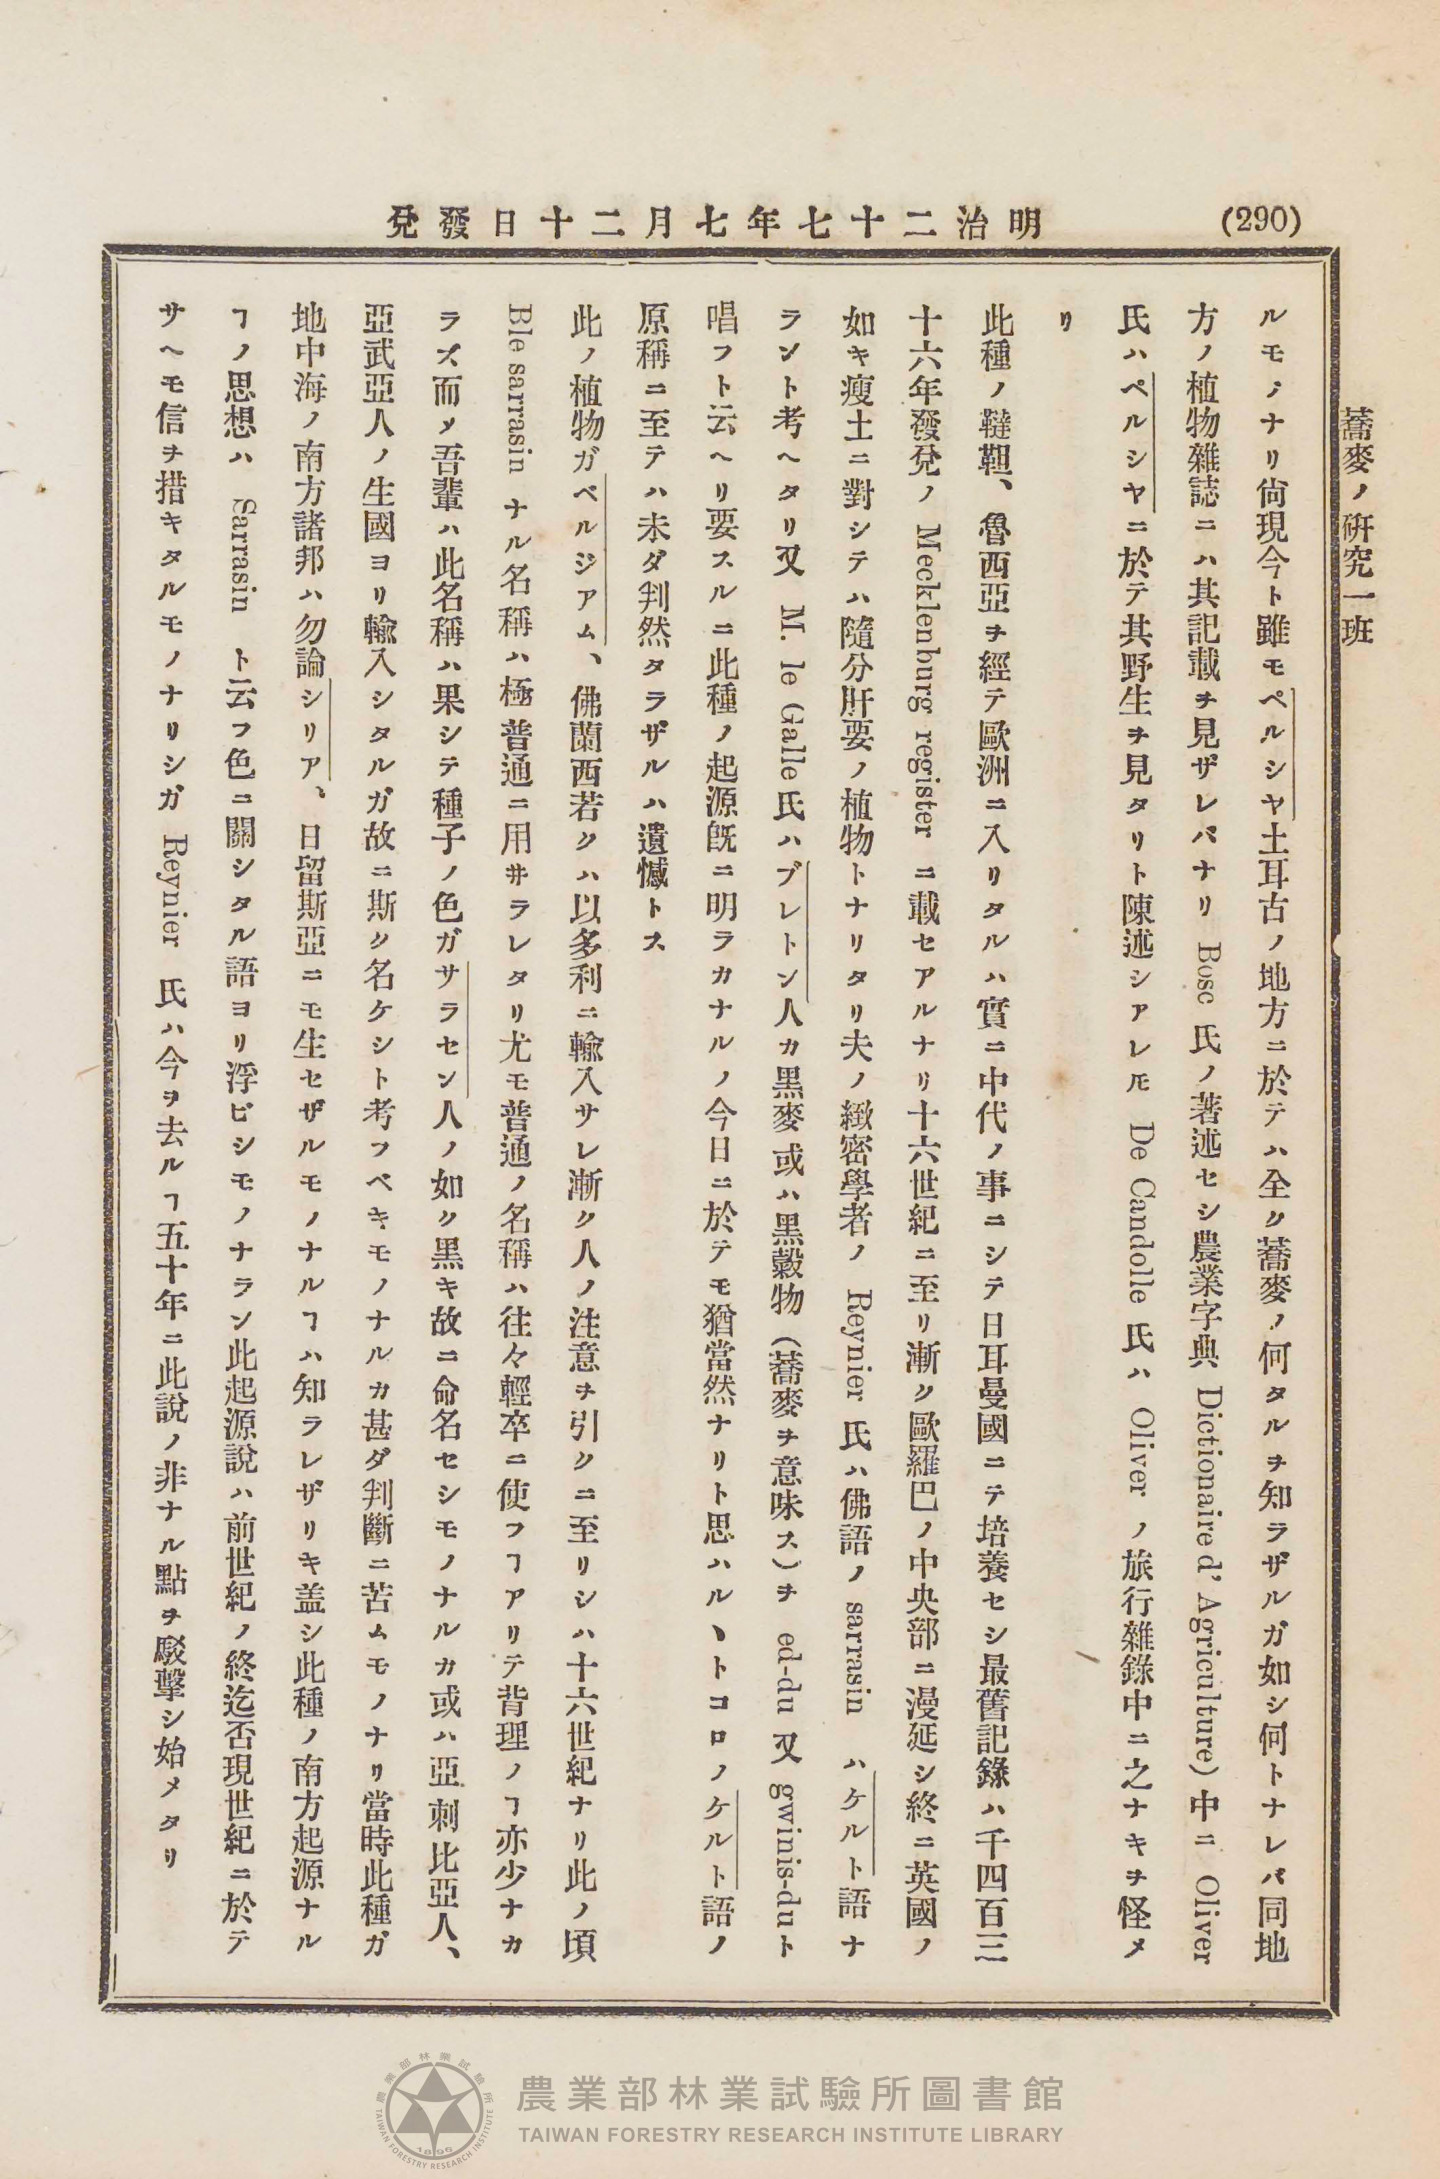 (290)
明治二十七年七月二十日發兌
蕎麥ノ研究一班
ルモノナリ尙現今ト雖モペルシヤ土耳古ノ地方ニ於テハ全ク蕎麥ノ何タルヲ知ラザルガ如シ何トナレバ同地
方ノ植物雜誌ニハ其記載ヲ見ザレバナリ Bosc 氏ノ著述セシ農業字典 Dictionaire d' Agriculture）中ニ Oliver
氏ハペルシヤニ於テ其野生ヲ見タリト陳述シアレ𪜈 De Candolle 氏ハ Oliver ノ旅行雜錄中ニ之ナキヲ怪メ
リ
此種ノ韃靼、魯西亞ヲ經テ歐洲ニ入リタルハ實ニ中代ノ事ニシテ日耳曼國ニテ培養セシ最舊記錄ハ千四百三
十六年發兌ノ Mecklenburg register ニ載セアルナリ十六世紀ニ至リ漸ク歐羅巴ノ中央部ニ漫延シ終ニ英國ノ
如キ瘦土ニ對シテハ隨分肝要ノ植物トナリタリ夫ノ緻密學者ノ Reynier 氏ハ佛語ノ sarrasin ハケルト語ナ
ラント考ヘタリ又 M. le Galle 氏ハブレトン人カ黑麥或ハ黑穀物（蕎麥ヲ意味ス）ヲ ed-du 又 gwinis-du ト
唱フト云ヘリ要スルニ此種ノ起源既ニ明ラカナルノ今日ニ於テモ猶當然ナリト思ハルヽトコロノケルト語ノ
原稱ニ至テハ未ダ判然タラザルハ遺憾トス
此ノ植物ガベルジアム、佛蘭西若クハ以多利ニ輸入サレ漸ク人ノ注意ヲ引クニ至リシハ十六世紀ナリ此ノ頃
Ble sarrasin ナル名稱ハ極普通ニ用井ラレタリ尤モ普通ノ名稱ハ往々輕卒ニ使フヿアリテ背理ノヿ亦少ナカ
ラズ而〆吾輩ハ此名稱ハ果シテ種子ノ色ガサラセン人ノ如ク黑キ故ニ命名セシモノナルカ或ハ亞刺比亞人、
亞武亞人ノ生國ヨリ輸入シタルガ故ニ斯ク名ケシト考フベキモノナルカ甚ダ判斷ニ苦ムモノナリ當時此種ガ
地中海ノ南方諸邦ハ勿論シリア、日留斯亞ニモ生セザルモノナルヿハ知ラレザリキ盖シ此種ノ南方起源ナル
ヿノ思想ハ Sarrasin ト云フ色ニ關シタル語ヨリ浮ビシモノナラン此起源說ハ前世紀ノ終迄否現世紀ニ於テ
サヘモ信ヲ措キタルモノナリシガ Reynier 氏ハ今ヲ去ルヿ五十年ニ此說ノ非ナル點ヲ駁擊シ始メタリ
農業部林業試驗所圖書館
TAIWAN FORESTRY RESEARCH INSTITUTE LIBRARY
農業部林業試驗所
TAIWAN FORESTRY RESEARCH INSTITUTE
1896